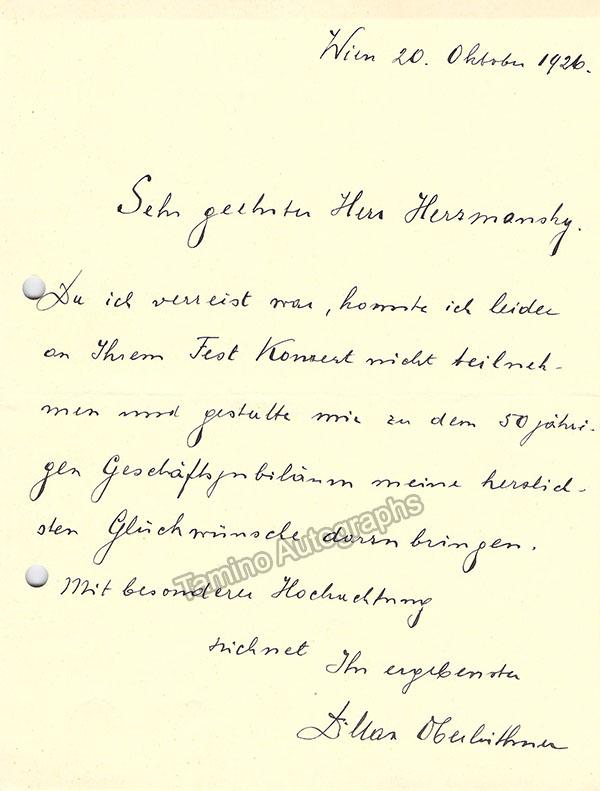 Wien 20. Oktober 1926.
Sehr geehrter Herr Herzmansky.
Da ich verreist war, konnte ich leider
an Ihrem Fest Konzert nicht teilneh-
men und gestatte mir zu dem 50 jähri-
gen Geschäftsjubiläum meine herzlich-
sten Glückwünsche darzubringen.
Tamino Autographs
Mit besonderer Hochachtung
zeichnet Ihr ergebenster
Dr Max Oberleithner